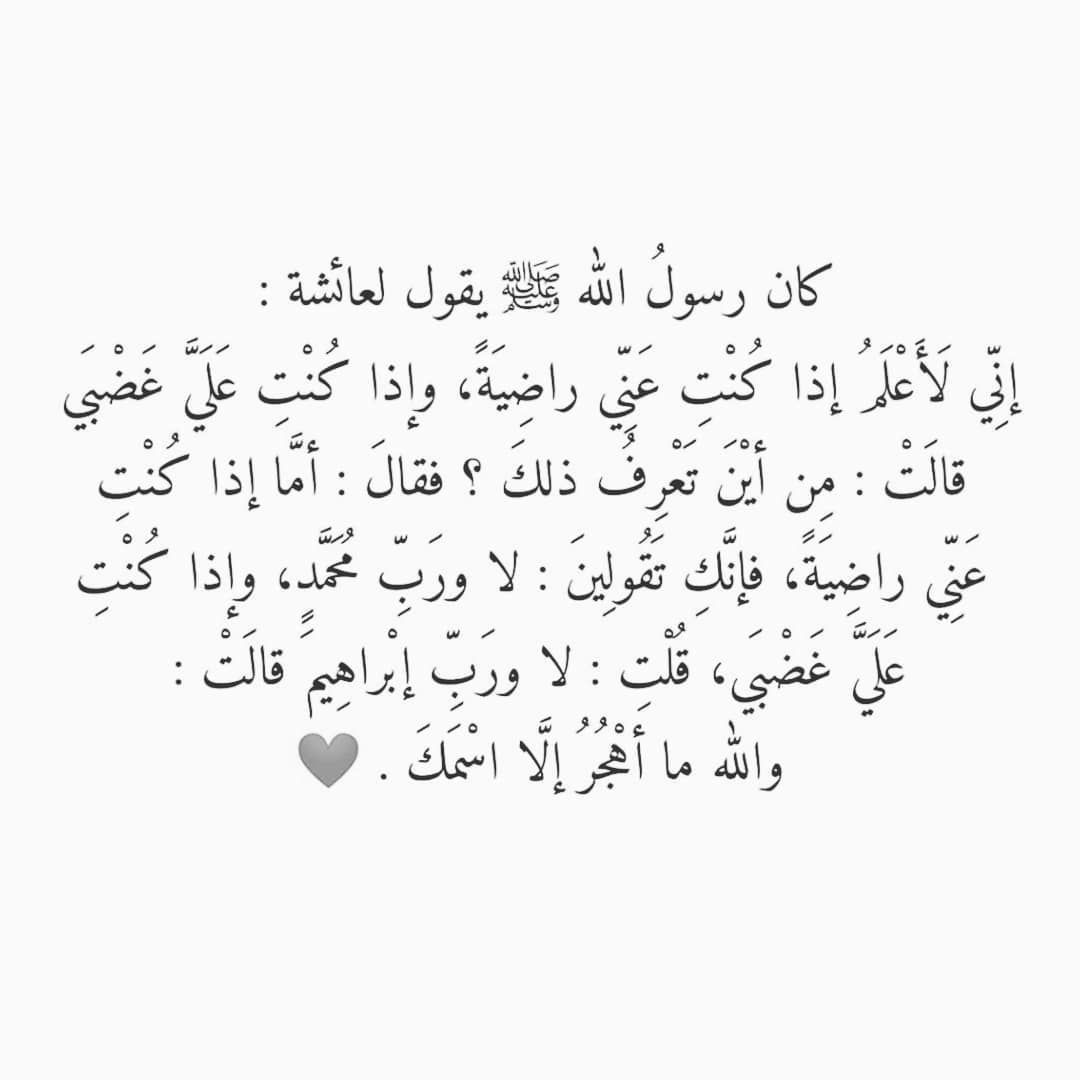 كان رسولُ الله ﷺ يقول لعائشة :
إنِّي لَأَعْلَمُ إذا كُنْتِ عَنِّي راضِيَةً، وإذا كُنْتِ عَلَيَّ غَضْبَي
قالَتْ : مِن أيْنَ تَعْرِفُ ذلكَ ؟ فقالَ : أمَّا إذا كُنْتِ
عَنِّي راضِيَةً، فإنَّكِ تَقُولِينَ : لا ورَبِّ مُحَمَّدٍ، وإذا كُنْتِ
عَلَيَّ غَضْبَي، قُلْتِ : لا ورَبِّ إبْراهِيمَ قالَتْ :
والله ما أهْجُرُ إلَّا اسْمَكَ . 🩶